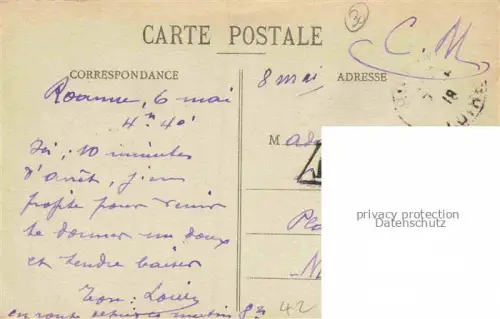 30
CARTE POSTALE
C. M
CORRESPONDANCE
8 mai
ADRESSE
Roanne, 6 mai
4 h 40'
18
LOIRE
Ici, 10 minutes
d'arrêt, j'en
profite pour venir
te donner un doux
et tendre baiser
Ton: Louis
en route depuis ce matin 8h
M ad
Pla
N
42
privacy protection
Datenschutz